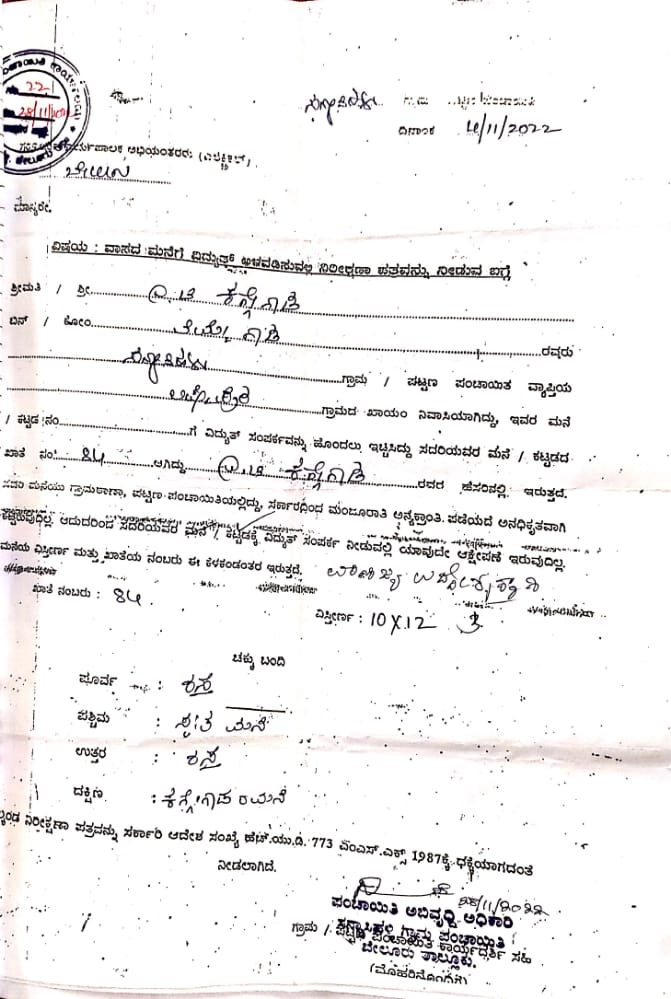 ಪಂಚಾಯಿತಿ ಕಾರ್ಯಾಲಯ
221
28/11/202
ಗ್ರಾಮ / ಪಟ್ಟಣ ಪಂಚಾಯಿತಿ
ದಿನಾಂಕ 4/11/2022
ಕಾರ್ಯಪಾಲಕ ಅಭಿಯಂತರರು (ಎಲೆಕ್ಟ್ರಿಕಲ್)
ಬೇಲೂರು
ಮಾನ್ಯರೇ.
ವಿಷಯ : ವಾಸದ ಮನೆಗೆ ವಿದ್ಯುತ್ ಅಳವಡಿಸುವಲ್ಲಿ ನಿರೀಕ್ಷಣಾ ಪತ್ರವನ್ನು ನೀಡುವ ಬಗ್ಗೆ
ಶ್ರೀಮತಿ / ಶ್ರೀ
ಬಿನ್ / ಕೋಂ ತಿಮ್ಮೇಗೌಡ ರವರು
ಗ್ರಾಮ / ಪಟ್ಟಣ ಪಂಚಾಯಿತ ವ್ಯಾಪ್ತಿಯ
ಗ್ರಾಮದ ಖಾಯಂ ನಿವಾಸಿಯಾಗಿದ್ದು, ಇವರ ಮನೆ
/ ಕಟ್ಟಡ ನಂ ಗೆ ವಿದ್ಯುತ್ ಸಂಪರ್ಕವನ್ನು ಹೊಂದಲು ಇಚ್ಛಿಸಿದ್ದು ಸದರಿಯವರ ಮನೆ / ಕಟ್ಟಡದ
ಖಾತೆ ನಂ. 84 ಆಗಿದ್ದು ರವರ ಹೆಸರಿನಲ್ಲಿ ಇರುತ್ತದೆ.
ಸದರಿ ಮನೆಯು ಗ್ರಾಮಠಾಣಾ, ಪಟ್ಟಣ ಪಂಚಾಯಿತಿಯಲ್ಲಿದ್ದು, ಸರ್ಕಾರದಿಂದ ಮಂಜೂರಾತಿ ಅನ್ಯಕ್ರಾಂತಿ ಪಡೆಯದೆ ಅನಧಿಕೃತವಾಗಿ
ಕಟ್ಟಿರುವುದಿಲ್ಲ. ಆದುದರಿಂದ ಸದರಿಯವರ ಮನೆ / ಕಟ್ಟಡಕ್ಕೆ ವಿದ್ಯುತ್ ಸಂಪರ್ಕ ನೀಡುವಲ್ಲಿ ಯಾವುದೇ ಆಕ್ಷೇಪಣೆ ಇರುವುದಿಲ್ಲ.
ಮನೆಯ ವಿಸ್ತೀರ್ಣ ಮತ್ತು ಖಾತೆಯ ನಂಬರು ಈ ಕೆಳಕಂಡಂತರ ಇರುತ್ತದೆ.
ಖಾತೆ ನಂಬರು : 84
ವಿಸ್ತೀರ್ಣ : 10 X 12
ಚಕ್ಕು ಬಂದಿ
ಪೂರ್ವ : ರಸ್ತೆ
ಪಶ್ಚಿಮ : ಸ್ವತ ಮನೆ
ಉತ್ತರ : ರಸ್ತೆ
ದಕ್ಷಿಣ :
ನಿರೀಕ್ಷಣಾ ಪತ್ರವನ್ನು ಸರ್ಕಾರಿ ಆದೇಶ ಸಂಖ್ಯೆ ಹೆಚ್.ಯು.ಡಿ. 773 ಎಂಎಸ್.ಎಕ್ಸ್ 1987ಕ್ಕೆ ಧಕ್ಕೆಯಾಗದಂತೆ
ನೀಡಲಾಗಿದೆ.
28/11/2022
ಪಂಚಾಯಿತಿ ಅಭಿವೃದ್ಧಿ ಅಧಿಕಾರಿ
ಗ್ರಾಮ ಪಂಚಾಯಿತಿ
ಗ್ರಾಮ / ಪಟ್ಟಣ ಪಂಚಾಯಿತಿ ಕಾರ್ಯದರ್ಶಿ ಸಹಿ
ಬೇಲೂರು ತಾಲ್ಲೂಕು.
(ಮೊಹರಿನೊಂದಿಗೆ)